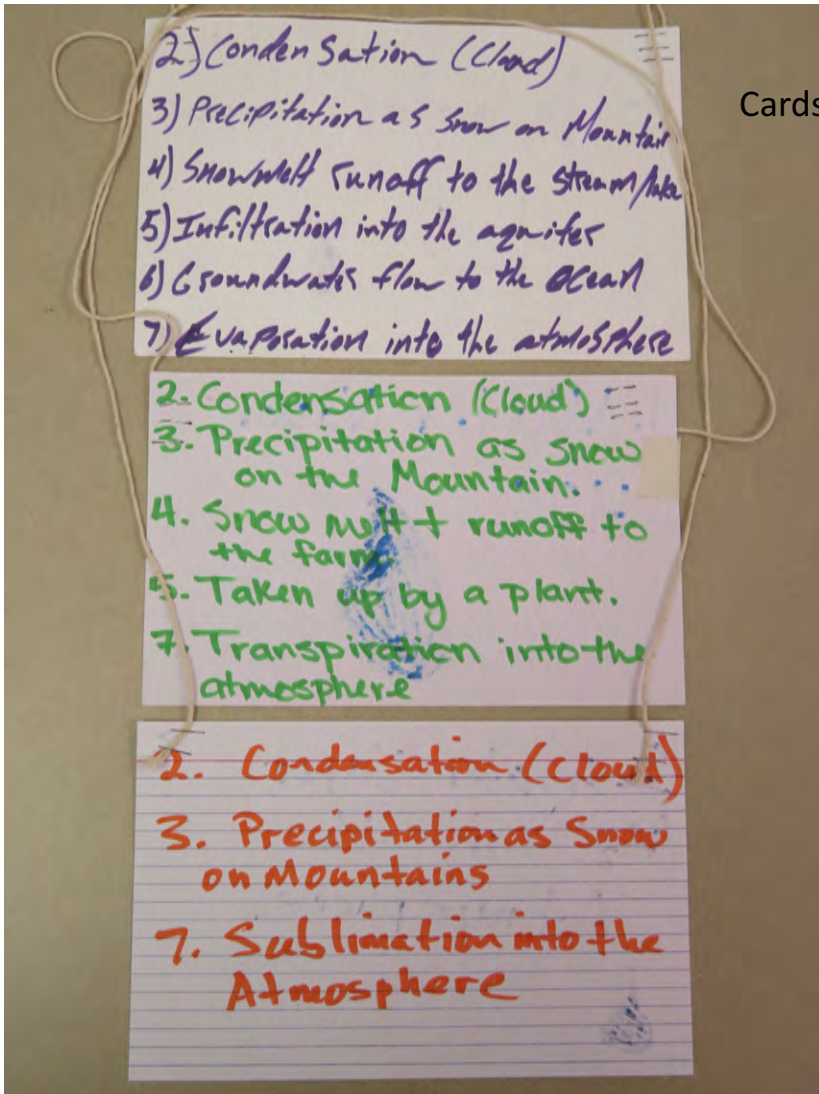 Cards
2) Condensation (Cloud)
3) Precipitation as Snow on Mountain
4) Snowmelt runoff to the stream/lake
5) Infiltration into the aquifer
6) Groundwater flow to the ocean
7) Evaporation into the atmosphere
2. Condensation (Cloud)
3. Precipitation as snow
on the Mountain.
4. Snow melt + runoff to
the farm.
5. Taken up by a plant.
7. Transpiration into the
atmosphere
2. Condensation (Cloud)
3. Precipitation as Snow
on Mountains
7. Sublimation into the
Atmosphere